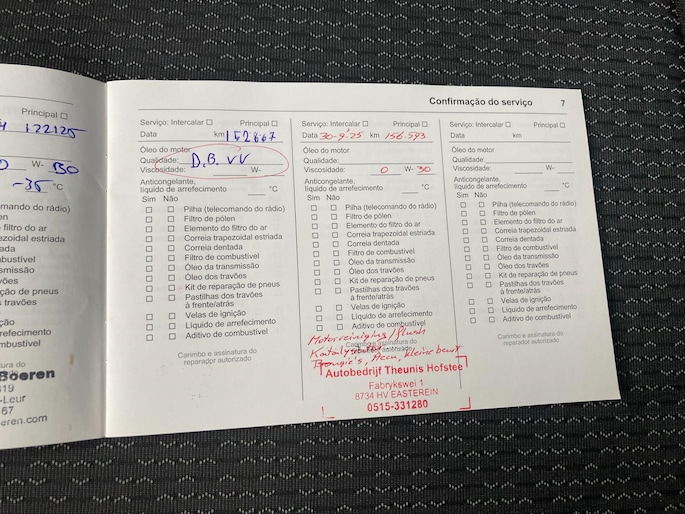 Confirmação do serviço 7
Principal
122125
W- 30
-35 °C
comando do rádio)
filtro do ar
ezoidal estriada
ada
mbustível
smissão
travões
ção de pneus
travões
ção
rrefecimento
mbustível
ura do
Boeren
319
-Leur
67
eren.com
Serviço: Intercalar Principal
Data km 152867
Óleo do motor
Qualidade: D.B. VV
Viscosidade: W-
Anticongelante,
líquido de arrefecimento °C
Sim Não
Pilha (telecomando do rádio)
Filtro de pólen
Elemento do filtro do ar
Correia trapezoidal estriada
Correia dentada
Filtro de combustível
Óleo da transmissão
Óleo dos travões
Kit de reparação de pneus
Pastilhas dos travões
à frente/atrás
Velas de ignição
Líquido de arrefecimento
Aditivo de combustível
Carimbo e assinatura do
reparador autorizado
Serviço: Intercalar Principal
Data 30-9-'25 km 156.593
Óleo do motor
Qualidade:
Viscosidade: 0 W- 30
Anticongelante,
líquido de arrefecimento °C
Sim Não
Pilha (telecomando do rádio)
Filtro de pólen
Elemento do filtro do ar
Correia trapezoidal estriada
Correia dentada
Filtro de combustível
Óleo da transmissão
Óleo dos travões
Kit de reparação de pneus
Pastilhas dos travões
à frente/atrás
Velas de ignição
Líquido de arrefecimento
Aditivo de combustível
Motorreiniging / flush
Carimbo e assinatura do
Bougie's, Accu, kleine beurt
Autobedrijf Theunis Hofstee
Fabrykswei 1
8734 HV EASTEREIN
0515-331280
Serviço: Intercalar Principal
Data km
Óleo do motor
Qualidade:
Viscosidade: W-
Anticongelante,
líquido de arrefecimento °C
Sim Não
Pilha (telecomando do rádio)
Filtro de pólen
Elemento do filtro do ar
Correia trapezoidal estriada
Correia dentada
Filtro de combustível
Óleo da transmissão
Óleo dos travões
Kit de reparação de pneus
Pastilhas dos travões
à frente/atrás
Velas de ignição
Líquido de arrefecimento
Aditivo de combustível
Carimbo e assinatura do
reparador autorizado